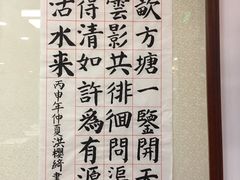 畝方塘一鑒開天
雲影共徘徊問渠
得清如許爲有源
活水来
丙申年仲夏洪櫻綺書